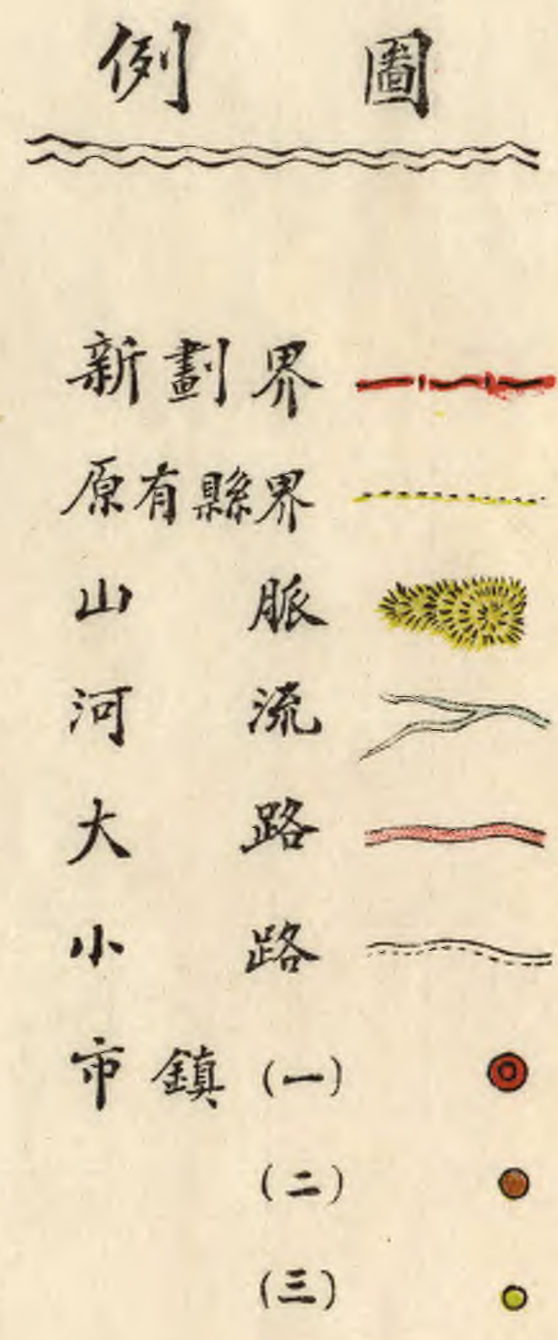 圖例
新劃界
原有縣界
山脈
河流
大路
小路
市鎮(一)
(二)
(三)